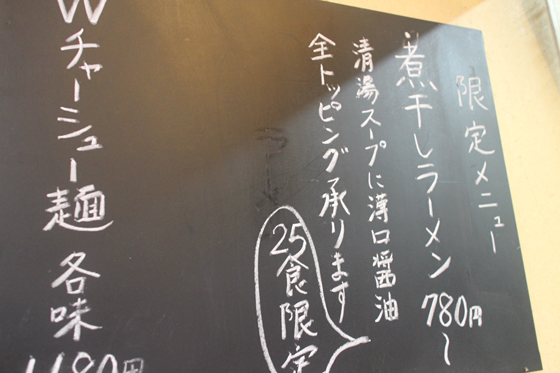 限定メニュー
煮干しラーメン 780円〜
清湯スープに薄口醤油
全トッピング承ります
25食限定
Wチャーシュー麺 各味
1180円